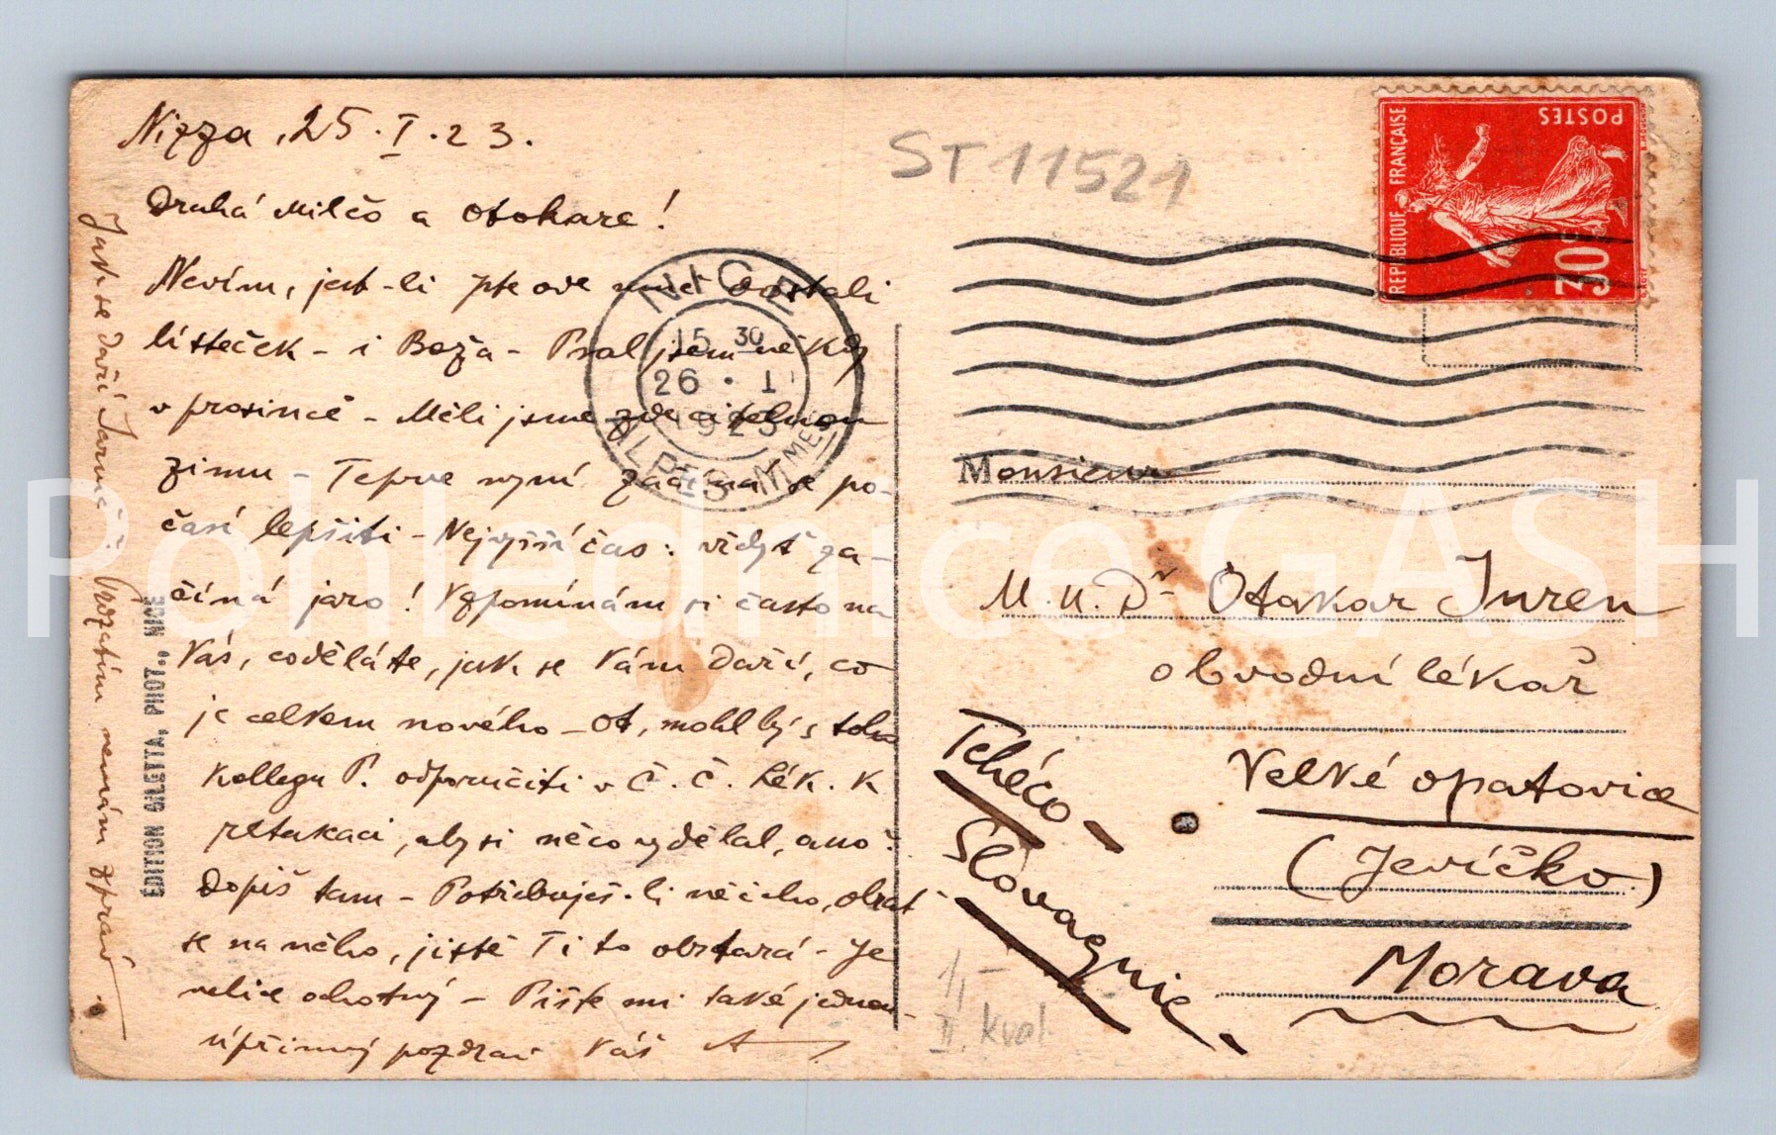 Nizza, 25. I. 23.
Drahá Milčo a Otokare!
Nevím, jest-li jste ode mne dostali
lísteček - i Boža - Psal jsem někdy
v prosinci - Měli jsme zde citelnou
zimu - Teprve nyní začíná se po-
časí lepšiti - Nejvyšší čas: vždyť za-
číná jaro! Vzpomínám si často na
Vás, coděláte, jak se Vám daří, co
je celkem nového - Ot, mohl bys toho
kollegu P. odporučiti v Č. Č. Lék. k
, aby si něco vydělal, ano?
Dopiš tam - Potřebuješ-li něčeho, obrať
se na něho, jistě Ti to obstará - Je
velice ochotný - Pište mi také jednou -
úpřimný pozdrav Váš A
Jak se daří Jarmč? Prozatím nemám zpráv
EDITION GILETTA, PHOT., NICE
NICE
15 30
26 · I
1923
ALPES MMES
ST 11521
REPUBLIQUE FRANÇAISE
POSTES
30c
Monsieur
M.U.Dr Otakar Juren
obvodní lékař
Velké Opatovice
(Jevíčko)
Morava
Tchéco-
Slovaquie.
1,-
II. kval
Pohlednice GASH